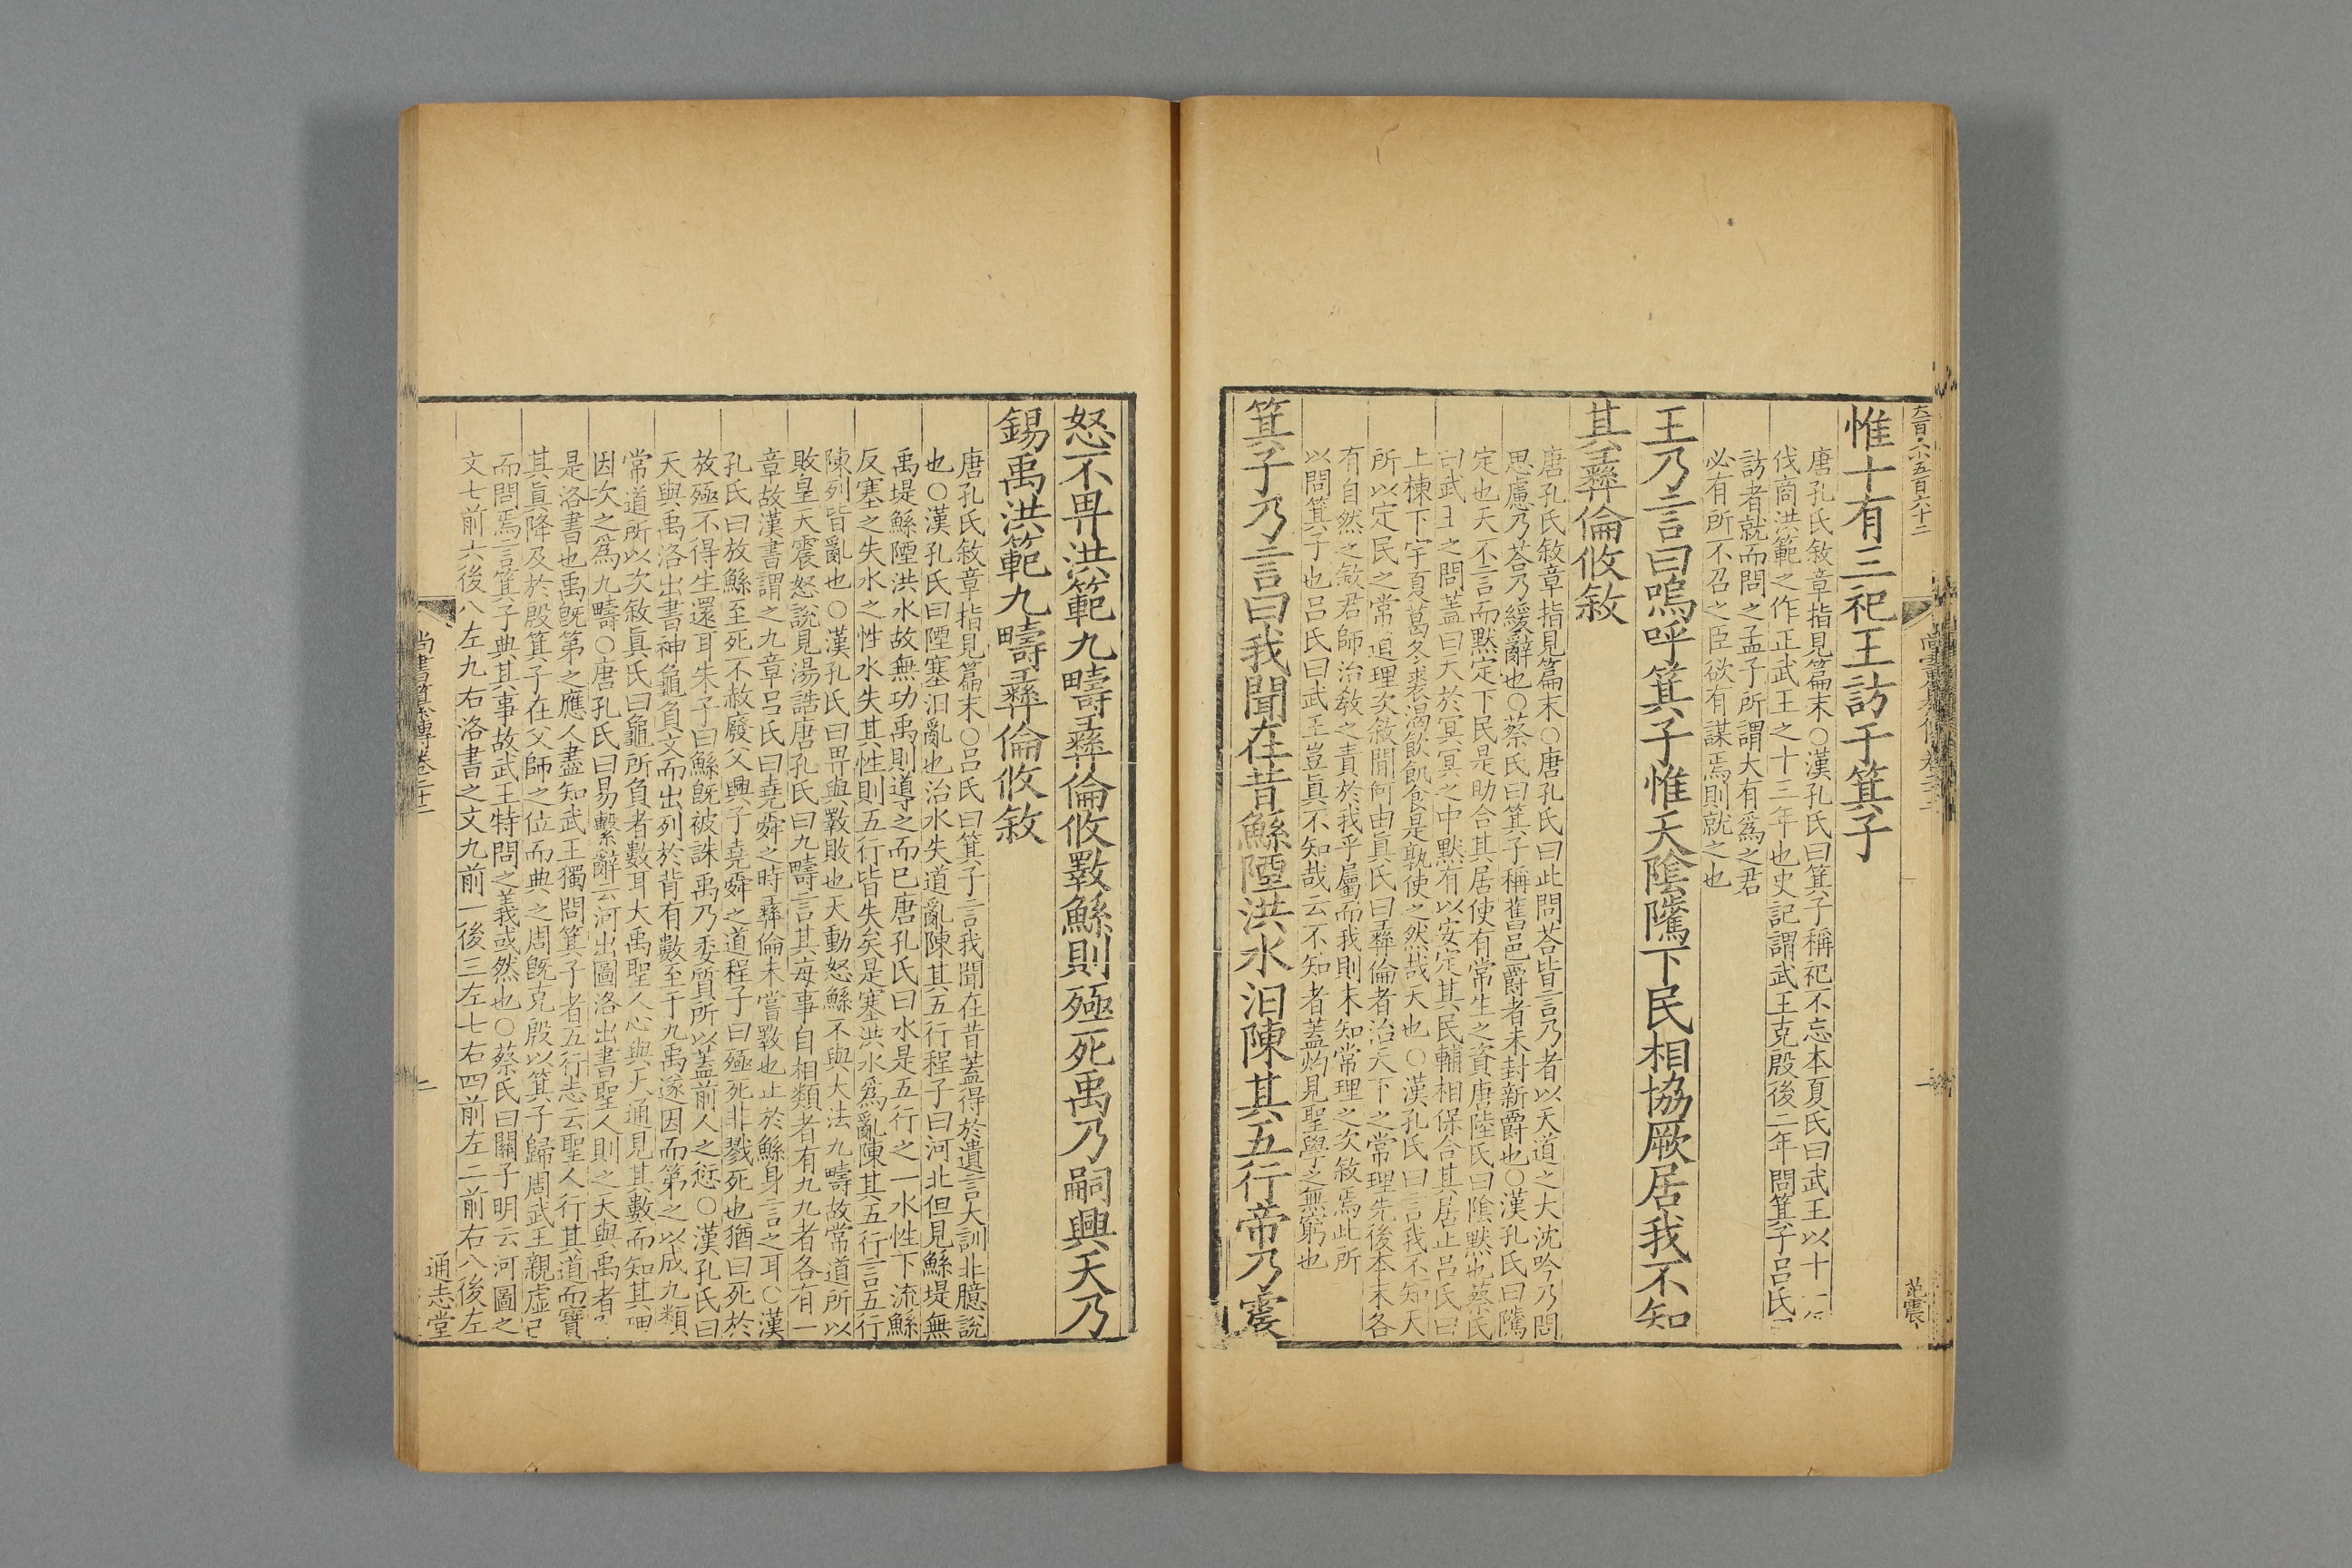 惟十有三祀王訪于箕子
唐孔氏敘章指見篇末○漢孔氏曰箕子稱祀不忘本夏氏曰武王以十
伐商洪範之作正武王之十三年也史記謂武王克殷後二年問箕子呂氏
訪者就而問之孟子所謂大有爲之君
必有所不召之臣欲有謀焉則就之也
王乃言曰嗚呼箕子惟天陰騭下民相協厥居我不知
其彝倫攸敘
唐孔氏敘章指見篇末○唐孔氏曰此問荅皆言乃者以天道之大沈吟乃問
思慮乃荅乃緩辭也○蔡氏曰箕子稱舊邑爵者未封新爵也○漢孔氏曰騭
定也天不言而默定下民是助合其居使有常生之資唐陸氏曰陰默也蔡氏
曰武王之問蓋曰天於冥冥之中默有以安定其民輔相保合其居止呂氏曰
上棟下宇夏葛冬裘渴飲飢食是孰使之然哉天也○漢孔氏曰言我不知天
所以定民之常道理次敘問何由眞氏曰彝倫者治天下之常理先後本末各
有自然之敘君師治教之責於我乎屬而我則未知常理之次敘焉此所
以問箕子也呂氏曰武王豈眞不知哉云不知者蓋灼見聖學之無窮也
箕子乃言曰我聞在昔鯀陻洪水汨陳其五行帝乃震
怒不畀洪範九疇彝倫攸斁鯀則殛死禹乃嗣興天乃
錫禹洪範九疇彝倫攸敘
唐孔氏敘章指見篇末○呂氏曰箕子言我聞在昔蓋得於遺言大訓非臆說
也○漢孔氏曰陻塞汨亂也治水失道亂陳其五行程子曰河北但見鯀堤無
禹堤鯀陻洪水故無功禹則導之而已唐孔氏曰水是五行之一水性下流鯀
反塞之失水之性水失其性則五行皆失矣是塞洪水爲亂陳其五行言五行
陳列皆亂也○漢孔氏曰畀與斁敗也天動怒鯀不與大法九疇故常道所以
敗皇天震怒說見湯誥唐孔氏曰九疇言其每事自相類者有九九者各有一
章故漢書謂之九章呂氏曰堯舜之時彝倫未嘗斁也止於鯀身言之耳○漢
孔氏曰放鯀至死不赦廢父興子堯舜之道程子曰殛死非戮死也猶曰死於
放殛不得生還耳朱子曰鯀旣被誅禹乃委質所以蓋前人之愆○漢孔氏曰
天與禹洛出書神龜負文而出列於背有數至于九禹遂因而第之以成九類
常道所以次敘眞氏曰龜所負者數耳大禹聖人心與天通見其數而知其理
因次之爲九疇○唐孔氏曰易繫辭云河出圖洛出書聖人則之天與禹者
是洛書也禹旣第之應人盡知武王獨問箕子者五行志云聖人行其道而寶
其眞降及於殷箕子在父師之位而典之周旣克殷以箕子歸周武王親虛己
而問焉言箕子典其事故武王特問之義或然也○蔡氏曰關子明云河圖之
文七前六後八左九右洛書之文九前一後三左七右四前左二前右八後左
尚書纂傳卷二十二
二
通志堂